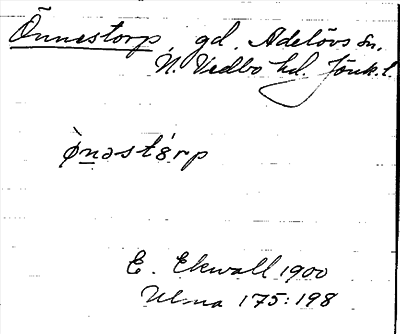 Önnestorp, gd, Adelövs sn.
N. Vedbo hd. Jönk. l.
ø̀nəstórp
E. Ekwall 1900
Ul-na 175:198